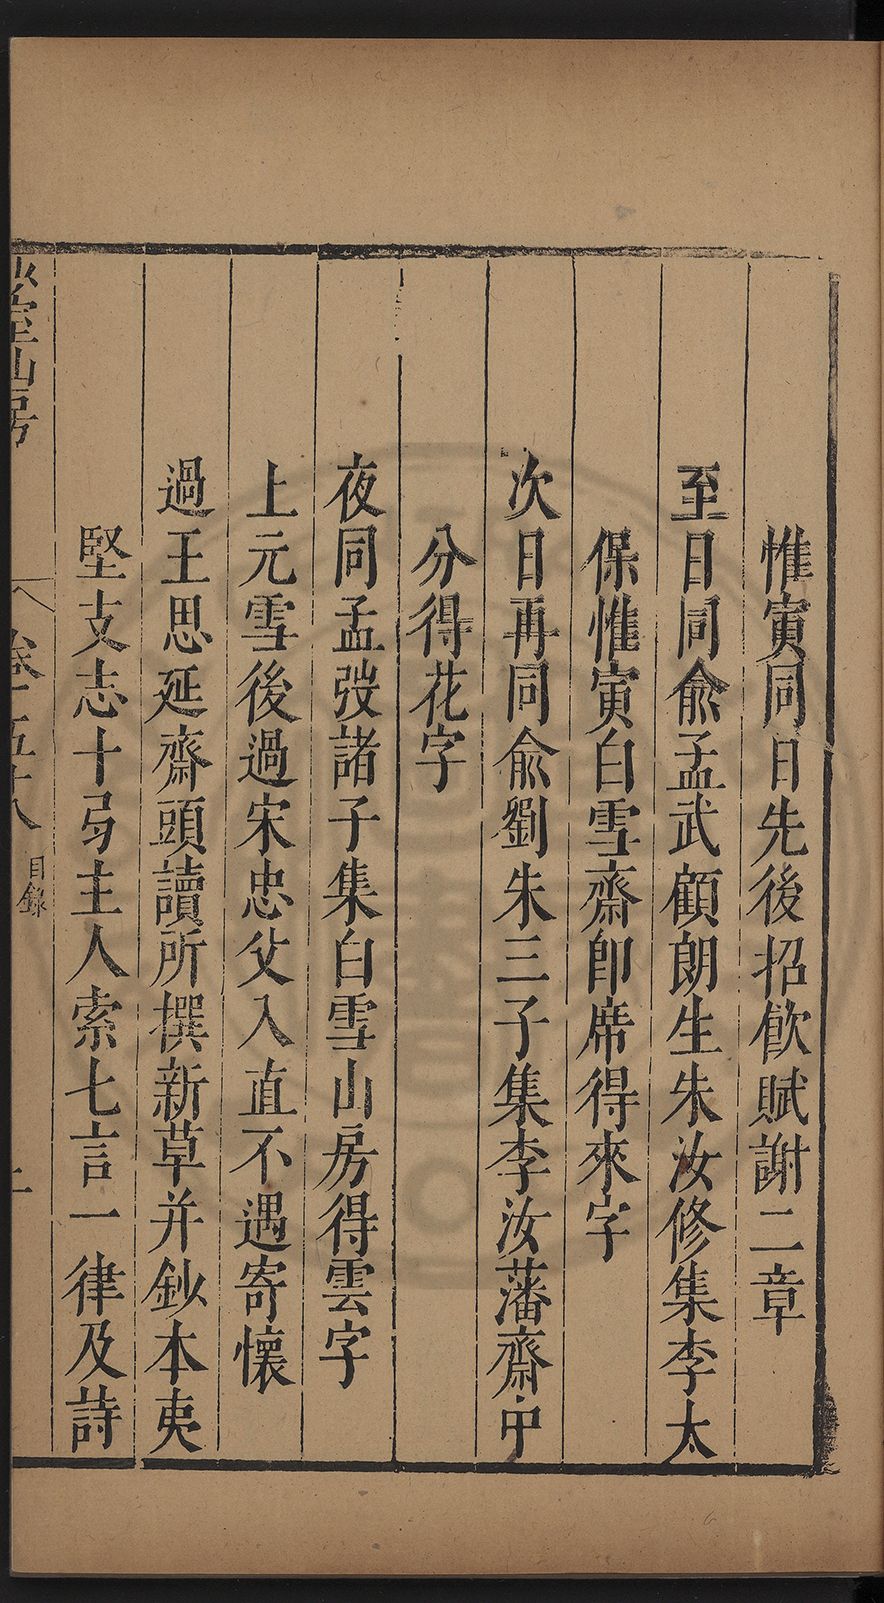 惟寅同日先後招飲賦謝二章
至日同俞孟武顧朗生朱汝修集李太
保惟寅白雪齋即席得來字
次日再同俞劉朱三子集李汝藩齋中
分得花字
夜同孟弢諸子集白雪山房得雲字
上元雪後過宋忠父入直不遇寄懷
過王思延齋頭讀所撰新草并鈔本夷
堅支志十弓主人索七言一律及詩
室山房
卷
目錄